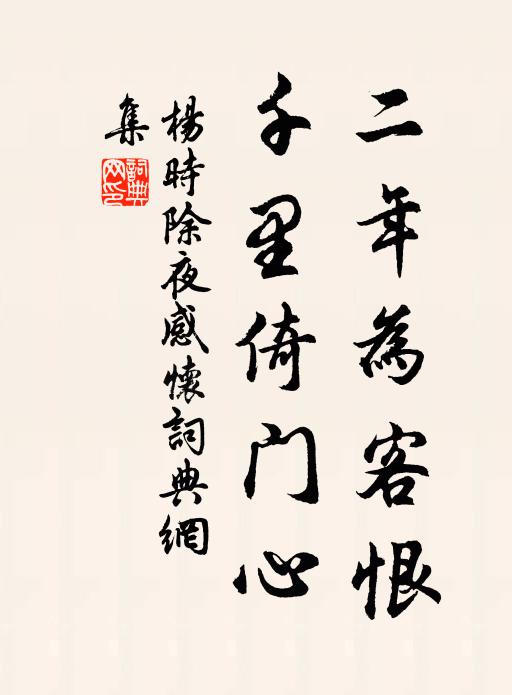 二年為客恨
千里倚门心
楊時除夜感懷詞典網
集
詞典
网印